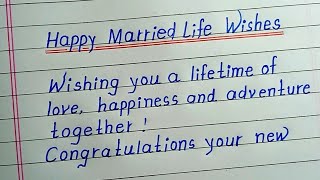 Happy Married Life Wishes
Wishing you a lifetime of
love, happiness and adventure
together !
Congratulations your new